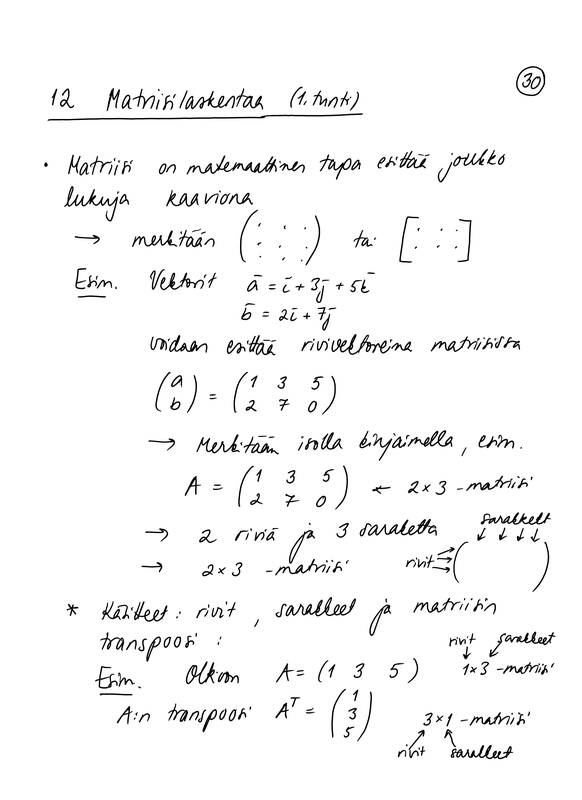 30
12 Matriisilaskentaa (1. tunti)
• Matriisi on matemaattinen tapa esittää joukko
lukuja kaaviona
→ merkitään ( ) tai [ ]
Esim. Vektorit ā = ī + 3j̄ + 5k̄
b̄ = 2ī + 7j̄
voidaan esittää rivivektoreina matriisissa
(a b) = (1 3 5
2 7 0)
→ Merkitään isolla kirjaimella, esim.
A = (1 3 5
2 7 0) ← 2×3 -matriisi
→ 2 riviä ja 3 saraketta
sarakkeet
→ 2×3 -matriisi
rivit
* Käsitteet: rivit, sarakkeet ja matriisin
transpoosi:
rivit sarakkeet
Esim. Olkoon A = (1 3 5) 1×3 -matriisi
A:n transpoosi Aᵀ = (1
3
5) 3×1 -matriisi
rivit sarakkeet